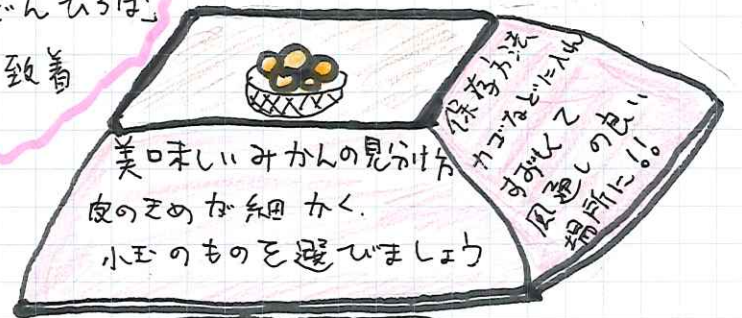 どんひろば」
到着
美味しいみかんの見分け方
皮のきめが細かく、
小玉のものを選びましょう
保存方法
カゴなどに入れ
すずしくて
風通しの良い
場所に!!